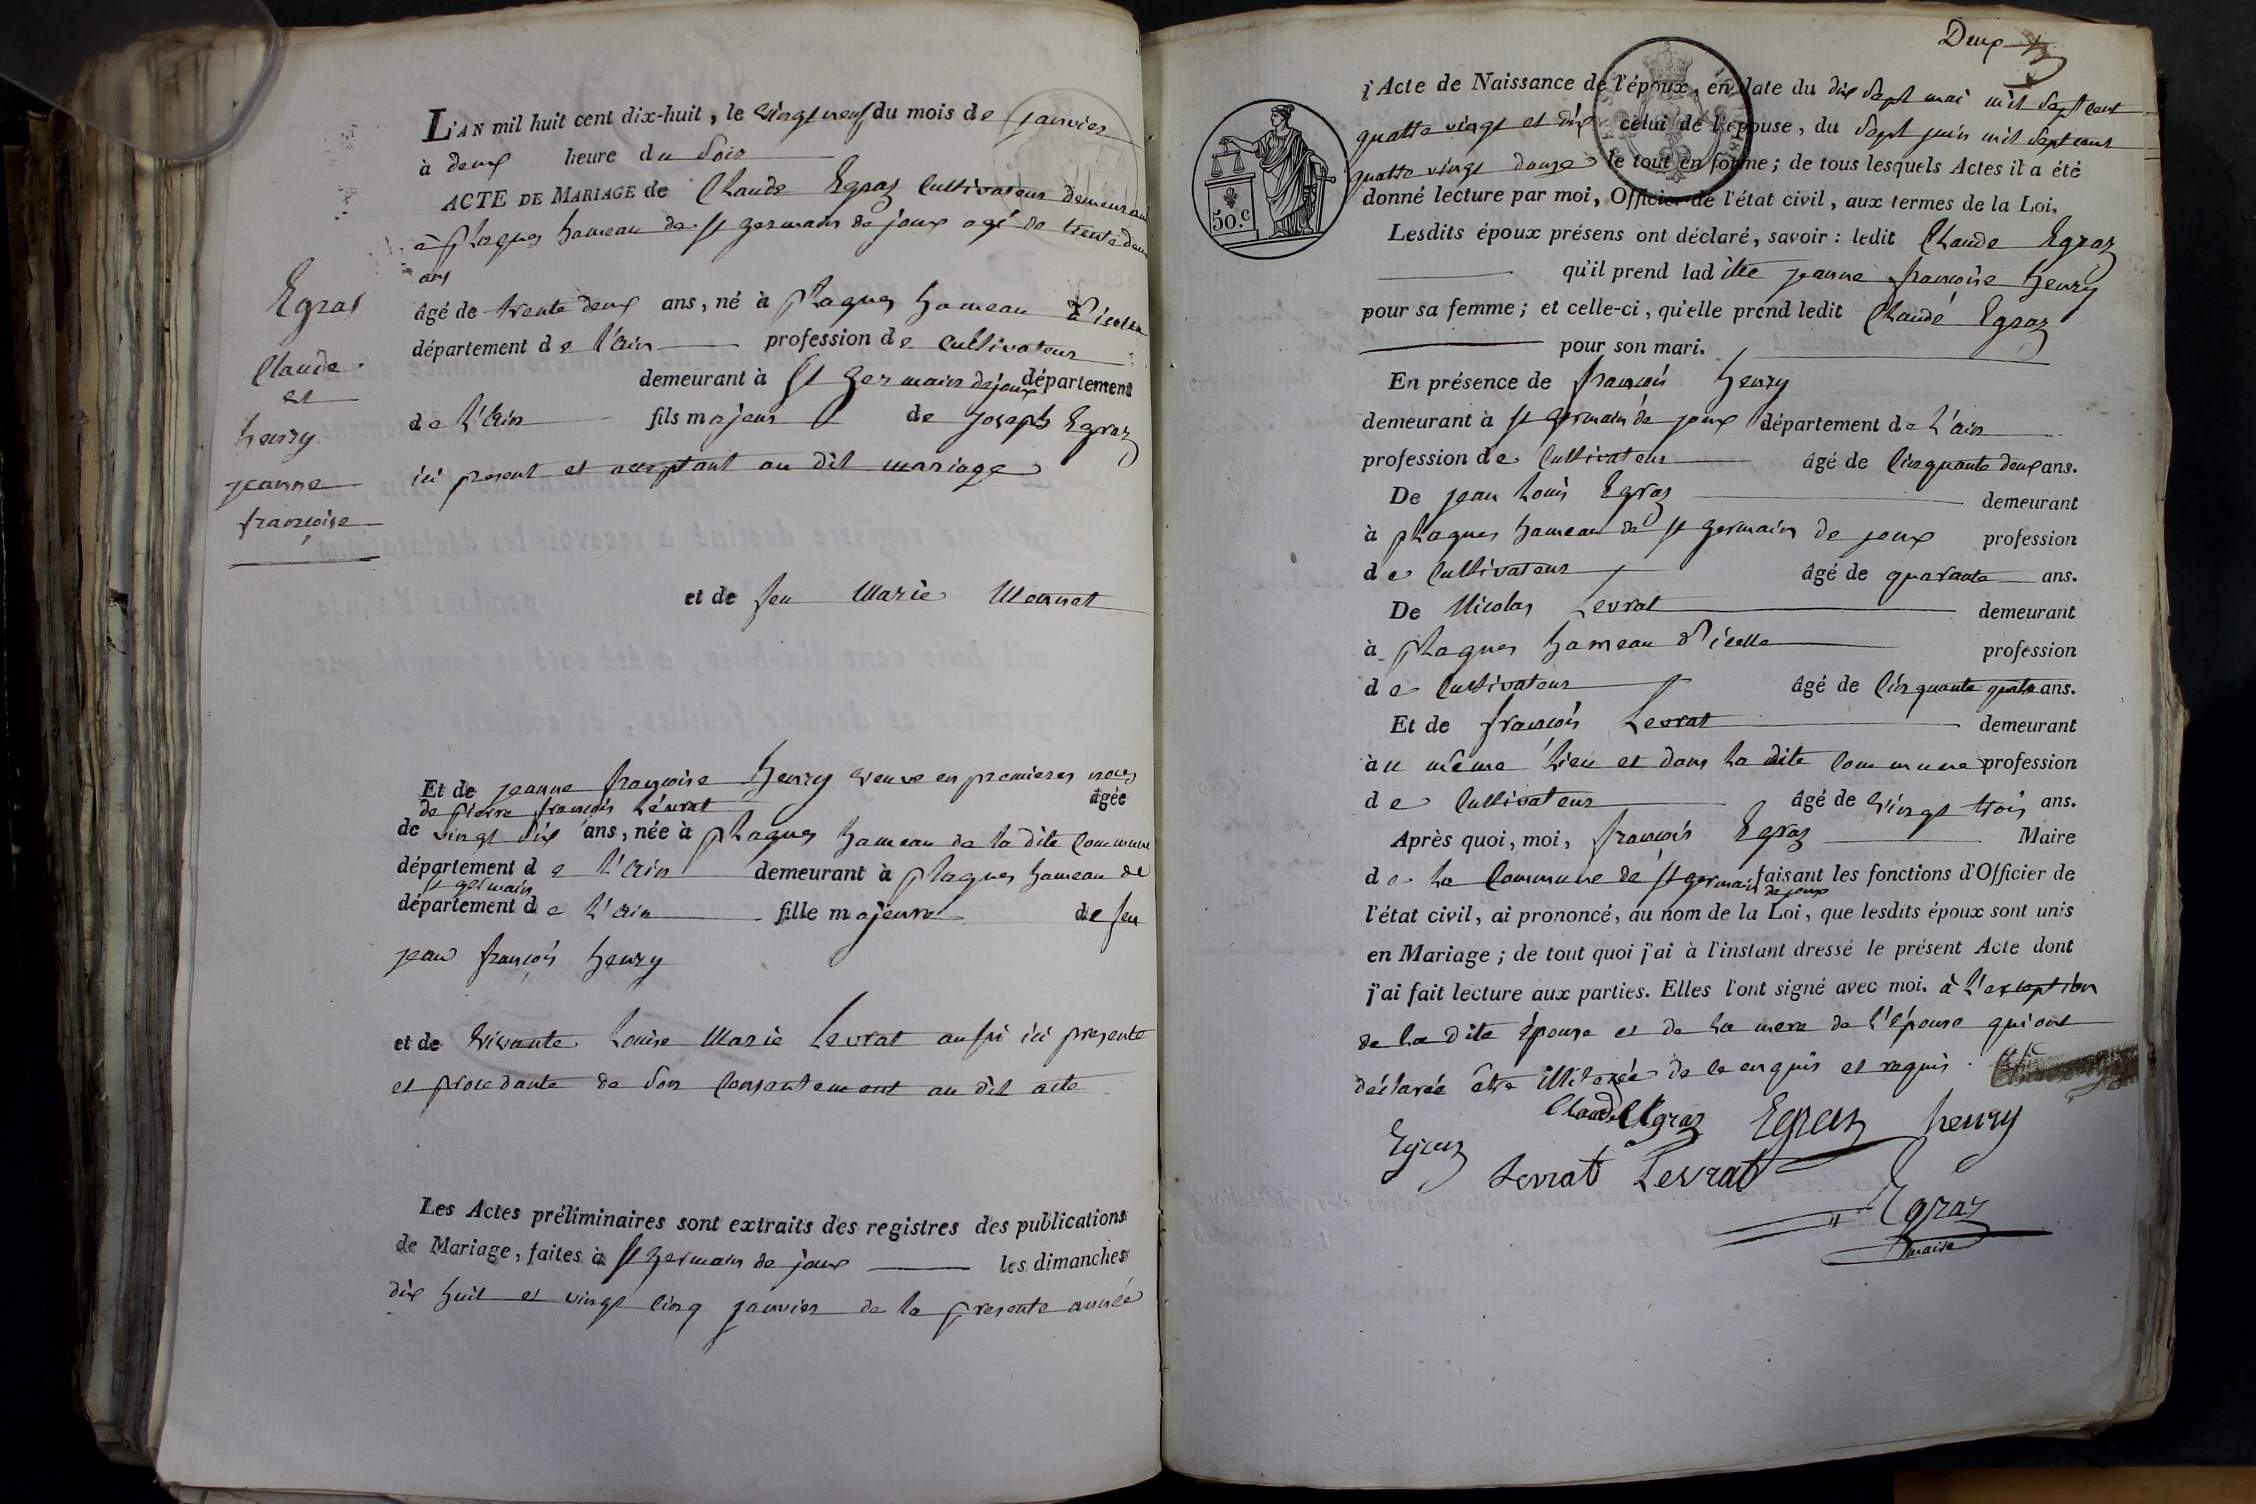 Egraz
Claude
et
henry
jeanne
françoise
L'AN mil huit cent dix-huit, le vingt neuf du mois de janvier
à deux heure du Soir
ACTE DE MARIAGE de Claude Egraz Cultivateur demeurant
à plagnes hameau de st germain de joux agé de trente deux
ans
âgé de trente deux ans, né à plagnes hameau d'icelle
département de l'ain profession de Cultivateur
demeurant à st germain de joux département
de l'ain fils majeur de joseph Egraz
ici present et acceptant au dit mariage
et de feu Marie Monnet
Et de jeanne françoise henry veuve en premieres noces
de pierre françois Levrat âgée
de vingt six ans, née à plagnes hameau de la dite Commune
département de l'ain demeurant à plagnes hameau de
st germain
département de l'ain fille majeure de feu
jean françois henry
et de vivante Louise Marie Levrat aussi ici presente
et procedante de son Consentement au dit acte
Les Actes préliminaires sont extraits des registres des publications
de Mariage, faites à st germain de joux les dimanches
dix huit et vingt cinq janvier de la presente année
Deux
50.c
Acte de Naissance de l'époux, en date du dix sept mai mil sept cent
quatre vingt et dix celui de l'épouse, du sept juin mil sept cent
quatre vingt douze le tout en forme; de tous lesquels Actes il a été
donné lecture par moi, Officier de l'état civil, aux termes de la Loi.
Lesdits époux présens ont déclaré, savoir: ledit Claude Egraz
qu'il prend ladite jeanne françoise henry
pour sa femme; et celle-ci, qu'elle prend ledit Claude Egraz
pour son mari.
En présence de françois henry
demeurant à st germain de joux département de l'ain
profession de Cultivateur âgé de Cinquante deux ans.
De jean Louis Egraz demeurant
à plagnes hameau de st germain de joux profession
de Cultivateur âgé de quarante ans.
De Nicolas Levrat demeurant
à plagnes hameau d'icelle profession
de Cultivateur âgé de Cinquante quatre ans.
Et de françois Levrat demeurant
au même lieu et dans la dite Commune profession
de Cultivateur âgé de vingt trois ans.
Après quoi, moi, françois Egraz Maire
de la Commune de st germain de joux faisant les fonctions d'Officier de
l'état civil, ai prononcé, au nom de la Loi, que lesdits époux sont unis
en Mariage; de tout quoi j'ai à l'instant dressé le présent Acte dont
j'ai fait lecture aux parties. Elles l'ont signé avec moi. à l'exception
de la dite Épouse et de la mere de l'Épouse qui ont
déclarée être illiterée de ce enquis et requis.
Claude Egraz Egraz henry
Egraz Levrat Levrat
Egraz
maire